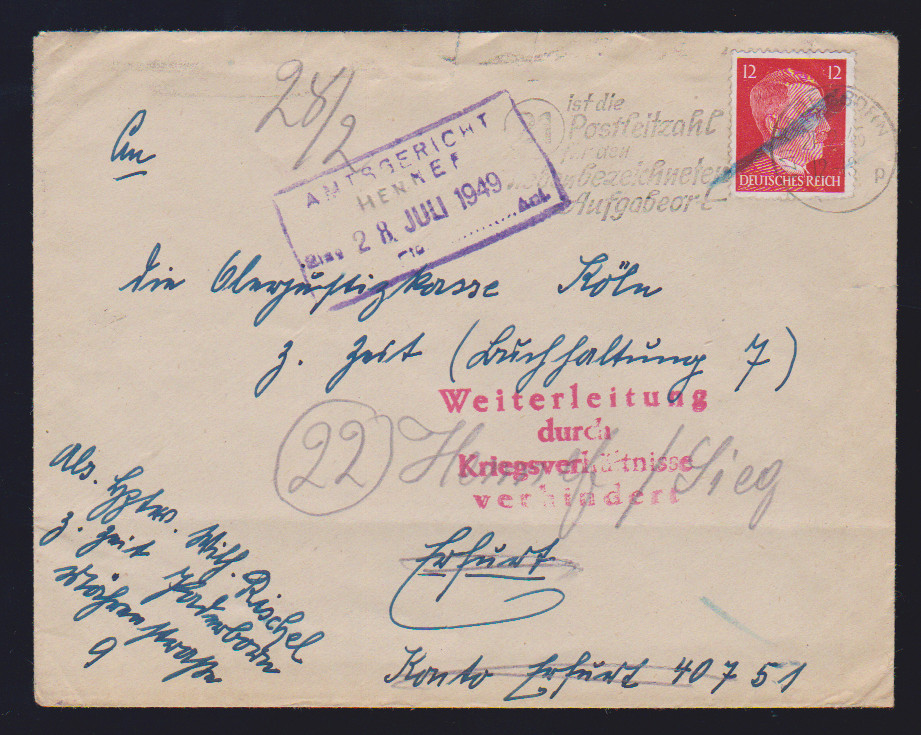 28/2
An
AMTSGERICHT
HENNEF
28. JULI 1949
Anl.
21
ist die
Postleitzahl
für den
neben bezeichneten
Aufgabeort
p
12 12
DEUTSCHES REICH
die Oberjustizkasse Köln
z. Zeit (Buchhaltung 7)
Weiterleitung
durch
Kriegsverhältnisse
verhindert
22 Hennef / Sieg
Erfurt
Konto Erfurt 40751
Abs. Hptw. Wilh. Rischel
z. Zeit Paderborn
9